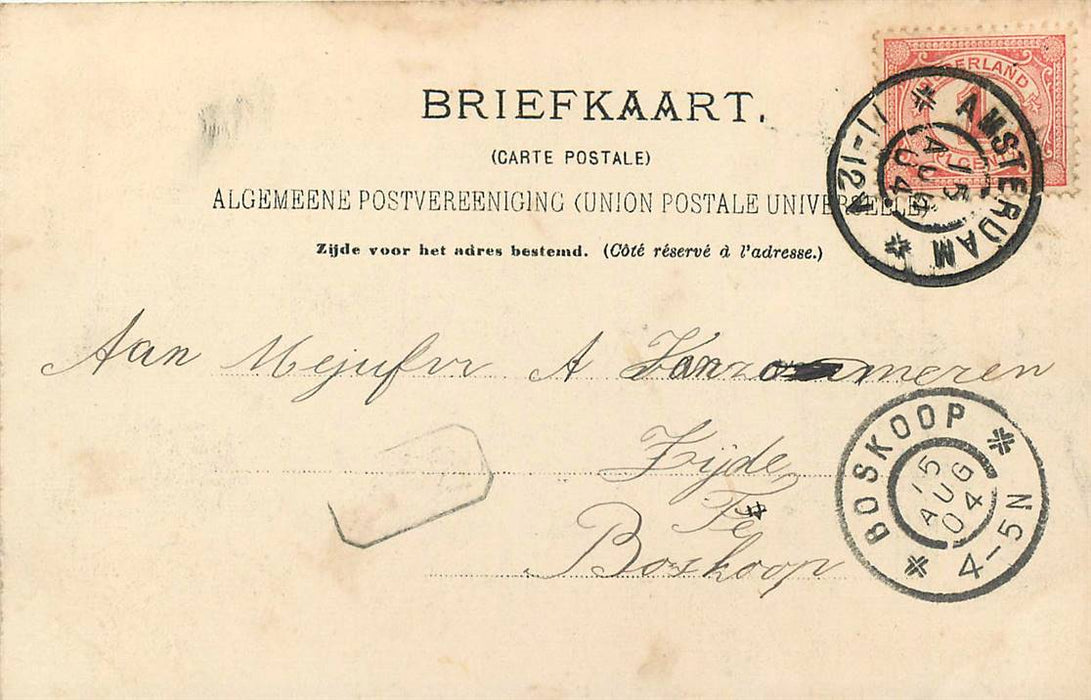 BRIEFKAART.
(CARTE POSTALE)
ALGEMEENE POSTVEREENIGING (UNION POSTALE UNIVERSELLE)
Zijde voor het adres bestemd. (Côté réservé à l'adresse.)
NEDERLAND
1
AMSTERDAM
11-12V
15
AUG
04
Aan Mejufvr A
Zijde
Te
Boskoop
BOSKOOP
15
AUG
04
4-5N